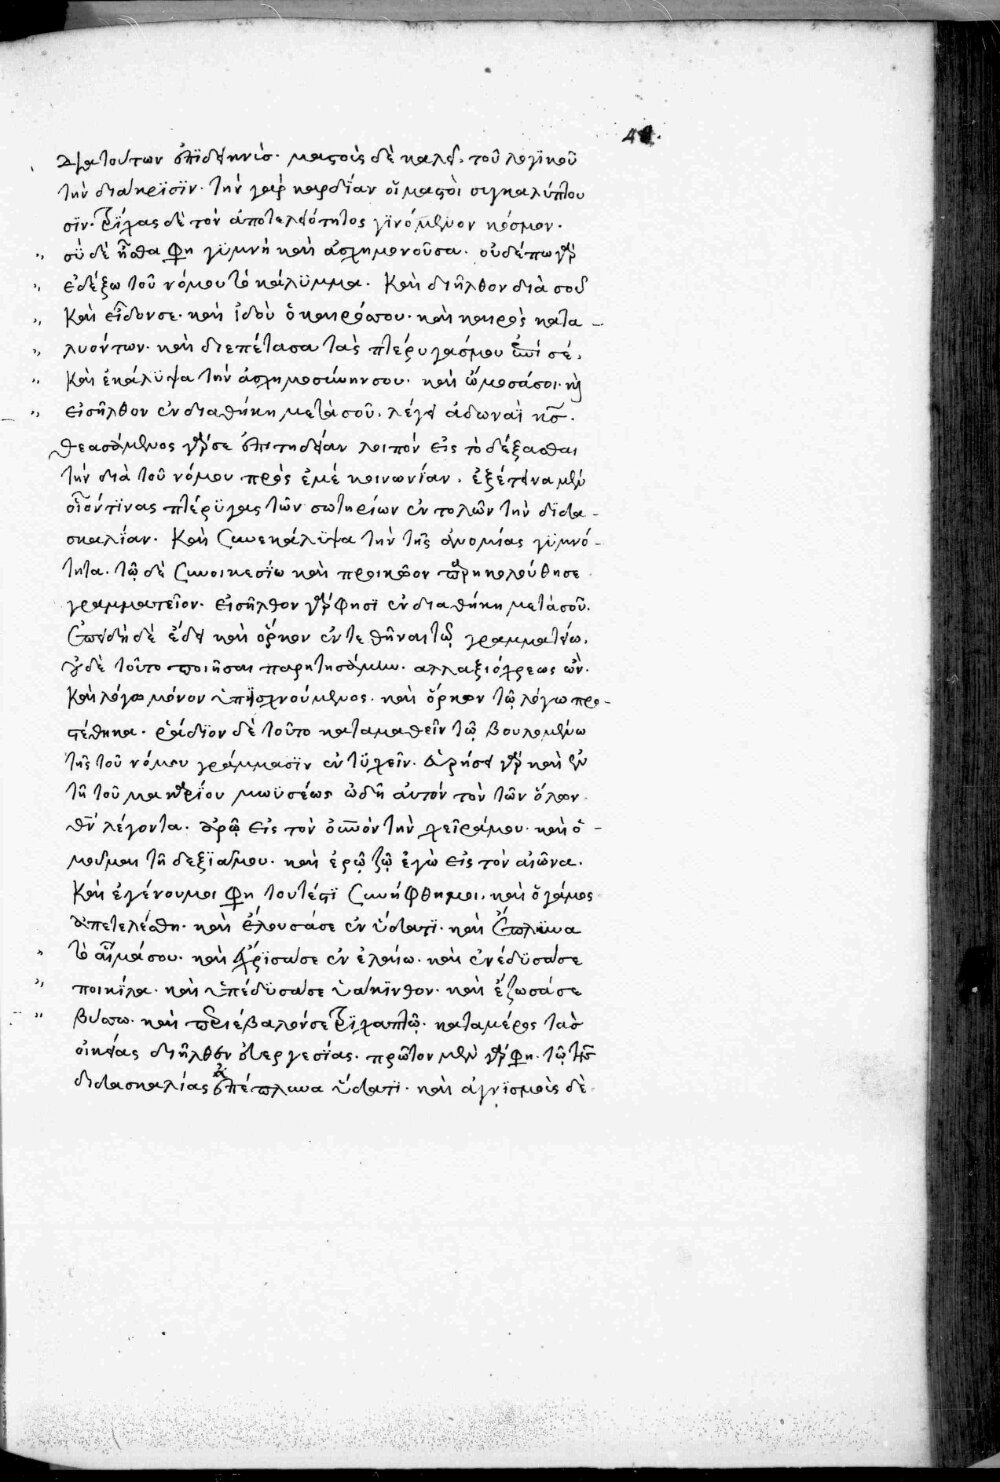 48.
διὰ τούτων ἐπιδεικνύς. μαστοὺς δὲ καλεῖ, τοῦ λογϊκοῦ
τὴν διάκρϊσϊν. τὴν γὰρ καρδίαν οἱ μαστοὶ συγκαλύπτου
σϊν. τρίχας δὲ τὸν ἀπὸ τελειότητος γϊνόμενον κόσμον.
σὺ δὲ ἦσθα φη γϋμνὴ καὶ ἀσχημονοῦσα. οὐδέπω γὰρ
ἐδέξω τοῦ νόμου τὸ κάλϋμμα. Καὶ διῆλθον διὰ σοῦ
Καὶ εἶδον σε. καὶ ἰδοὺ ὁ καιρός σου. καὶ καιρὸς κατα
λυόντων. καὶ διεπέτασα τὰς πτέρυγάς μου ἐπί σέ.
Καὶ ἐκάλϋψα τὴν ἀσχημοσύνην σου. καὶ ὤμοσά σοι. καὶ
εἰσῆλθον ἐν διαθήκη μετὰ σοῦ. λέγει ἀδωναῒ κς.
θεασάμενος γάρ σε ἐπιτηδείαν λοιπὸν εἰς τὸ δέξασθαι
τὴν διὰ τοῦ νόμου πρὸς ἐμὲ κοινωνίαν. ἐξέτεινα μὲν
οἷόν τινας πτέρϋγας τῶν σωτηρίων ἐντολῶν τὴν δϊδα
σκαλΐαν. Καὶ συνεκάλϋψα τὴν τῆς ἀνομίας γϋμνό
τητα. τῶ δὲ συνοικεσίω καὶ προικῶον παρηκολούθησε
γραμματεῖον. εἰσῆλθον γάρ φησϊ ἐν διαθήκη μετὰ σοῦ.
ἐπειδὴ δὲ ἔδει καὶ ὅρκον ἐντεθῆναι τῶ γραμματείω,
οὐδὲ τοῦτο ποιῆσαι παρητησάμην. ἀλλ' ἀξιόχρεως ὢν.
Καὶ λόγω μόνον ὑπισχνούμενος. καὶ ὅρκον τῶ λόγω προ
στέθηκα. ῥάδϊον δὲ τοῦτο καταμαθεῖν τῶ βουλομένω
τῆς τοῦ νόμου γράμμασϊν ἐντϋχεῖν. εὑρήσει γὰρ καὶ ἐν
τῆ τοῦ μακαρίου μωϋσέως ὠδῆ αὐτὸν τὸν τῶν ὅλων
θν λέγοντα. ἀρῶ εἰς τὸν οὐνὸν τὴν χεῖρά μου. καὶ ὀ
μοῦμαι τῆ δεξϊᾶ μου. καὶ ἐρῶ ζῶ ἐγὼ εἰς τὸν αἰῶνα.
Καὶ ἐγένου μοι φη τουτέστϊ συνήφθης μοι, καὶ ὁ γάμος
ἀπετελέσθη. καὶ ἔλουσά σε ἐν ὕδατϊ. καὶ ἔπλϋνα
τὸ αἷμά σου. καὶ ἔχρϊσά σε ἐν ἐλαίω. καὶ ἐνέδϋσά σε
ποικίλα. καὶ ὑπέδϋσά σε ὑάκινθον. καὶ ἔζωσά σε
βύσσω. καὶ περιέβαλόν σε τριχαπτῶ. κατὰ μέρος τὰς
οἰκείας διῆλθεν εὐεργεσίας. πρῶτον μὲν γάρ φη. τῶ τῆς
διδασκαλίας ἀπέπλυνα ὕδατϊ. καὶ ἁγνϊσμοῖς δὲ